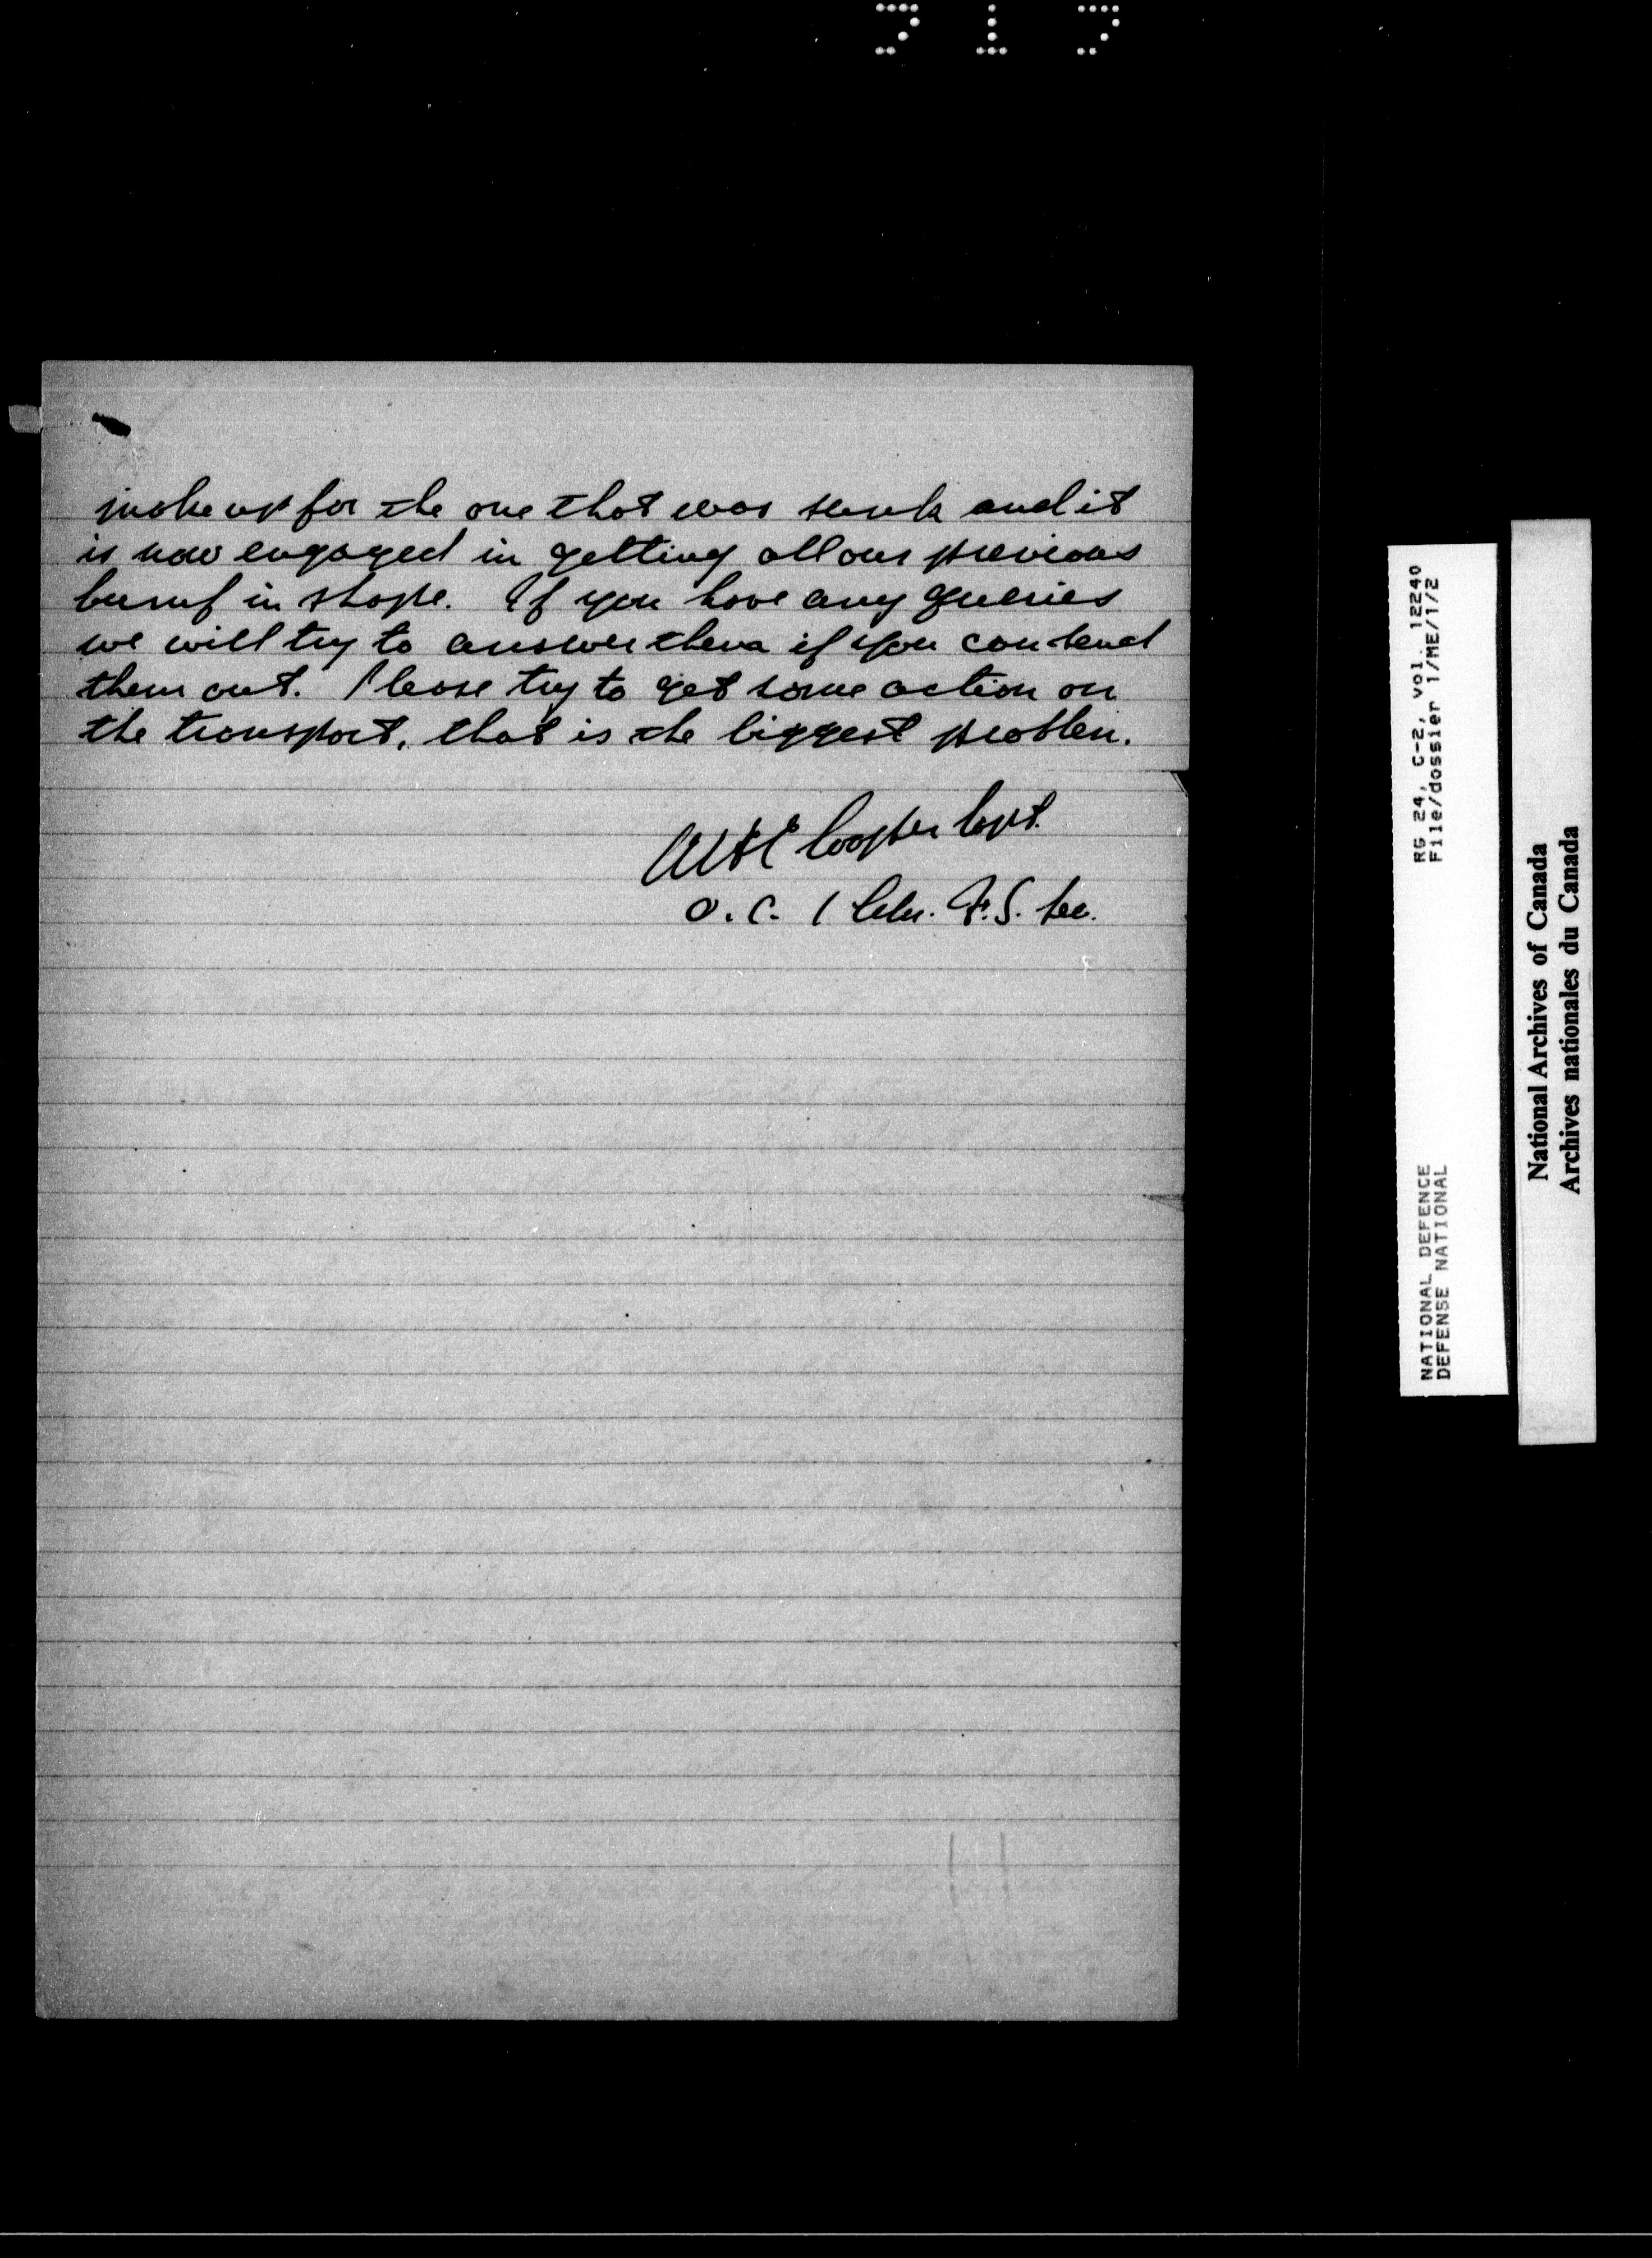 make up for the one that was sunk and it
is now engaged in getting all our previous
bumf in shape. If you have any queries
we will try to answer them if you can send
them out. Please try to get some action on
the transport, that is the biggest problem.
Cooper Capt.
O.C. 1 Cdn. F.S. Sec.
RG 24, C-2, vol. 12240
File/dossier 1/ME/1/2
NATIONAL DEFENCE
DEFENSE NATIONAL
National Archives of Canada
Archives nationales du Canada